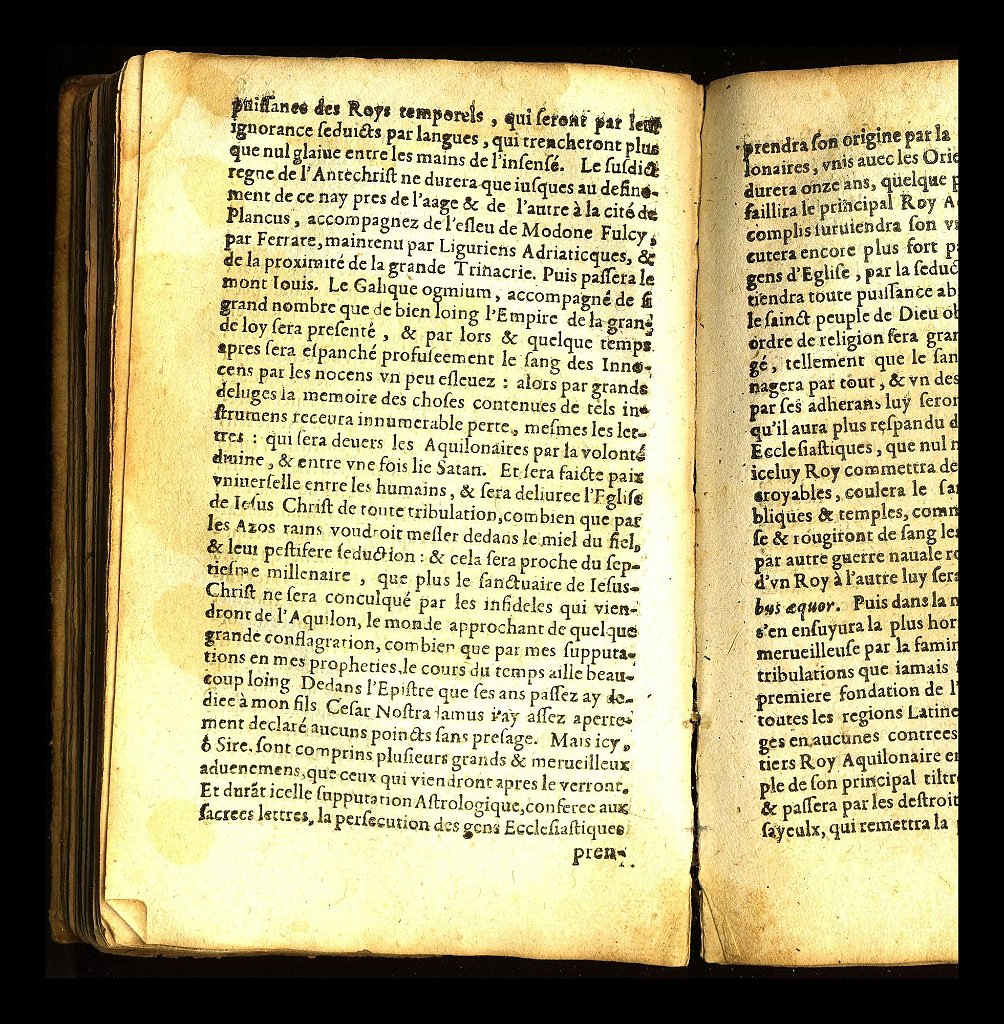 puissance des Roys temporels, qui seront par leur
ignorance seduicts par langues, qui trencheront plus
que nul glaiue entre les mains de l'insensé. Le susdict
regne de l'Antechrist ne durera que iusques au define-
ment de ce nay pres de l'aage & de l'autre à la cité de
Plancus, accompagnez de l'esleu de Modone Fulcy,
par Ferrare, maintenu par Liguriens Adriaticques, &
de la proximité de la grande Trinacrie. Puis passera le
mont Iouis. Le Galique ogmium, accompagné de si
grand nombre que de bien loing l'Empire de la gran-
de loy sera presenté, & par lors & quelque temps
apres sera espanché profuseement le sang des Inno-
cens par les nocens vn peu esleuez : alors par grands
deluges la memoire des choses contenues de tels in-
strumens receura innumerable perte, mesmes les let-
tres : qui sera deuers les Aquilonaires par la volonté
diuine, & entre vne fois lie Satan. Et sera faicte paix
vniuerselle entre les humains, & sera deliuree l'Eglise
de Iesus Christ de toute tribulation, combien que par
les Azos rains voudroit mesler dedans le miel du fiel,
& leur pestifere seduction : & cela sera proche du sep-
tiesme millenaire, que plus le sanctuaire de Iesus-
Christ ne sera conculqué par les infideles qui vien-
dront de l'Aquilon, le monde approchant de quelque
grande conflagration, combien que par mes supputa-
tions en mes propheties, le cours du temps aille beau-
coup loing Dedans l'Epistre que ses ans passez ay de-
diee à mon fils Cesar Nostradamus i'ay assez aperte-
ment declaré aucuns poincts sans presage. Mais icy,
ô Sire, sont comprins plusieurs grands & merueilleux
aduenemens, que ceux qui viendront apres le verront.
Et durãt icelle supputation Astrologique, conferee aux
sacrees lettres, la persecution des gens Ecclesiastiques
pren-
prendra son origine par la
lonaires, vnis auec les Orie
durera onze ans, quelque p
faillira le principal Roy A
complis suruiendra son v
cutera encore plus fort p
gens d'Eglise, par la seduc
tiendra toute puissance ab
le sainct peuple de Dieu ob
ordre de religion sera gran
gé, tellement que le san
nagera par tout, & vn des
par ses adherans luy seron
qu'il aura plus respandu d
Ecclesiastiques, que nul n
iceluy Roy commettra de
croyables, coulera le sa
bliques & temples, comm
se & rougiront de sang les
par autre guerre nauale ro
d'vn Roy à l'autre luy sera
bus æquor. Puis dans la n
s'en ensuyura la plus hor
merueilleuse par la famin
tribulations que iamais
premiere fondation de l'
toutes les regions Latine
ges en aucunes contrees
tiers Roy Aquilonaire en
ple de son principal tiltre
& passera par les destroit
sayeulx, qui remettra la